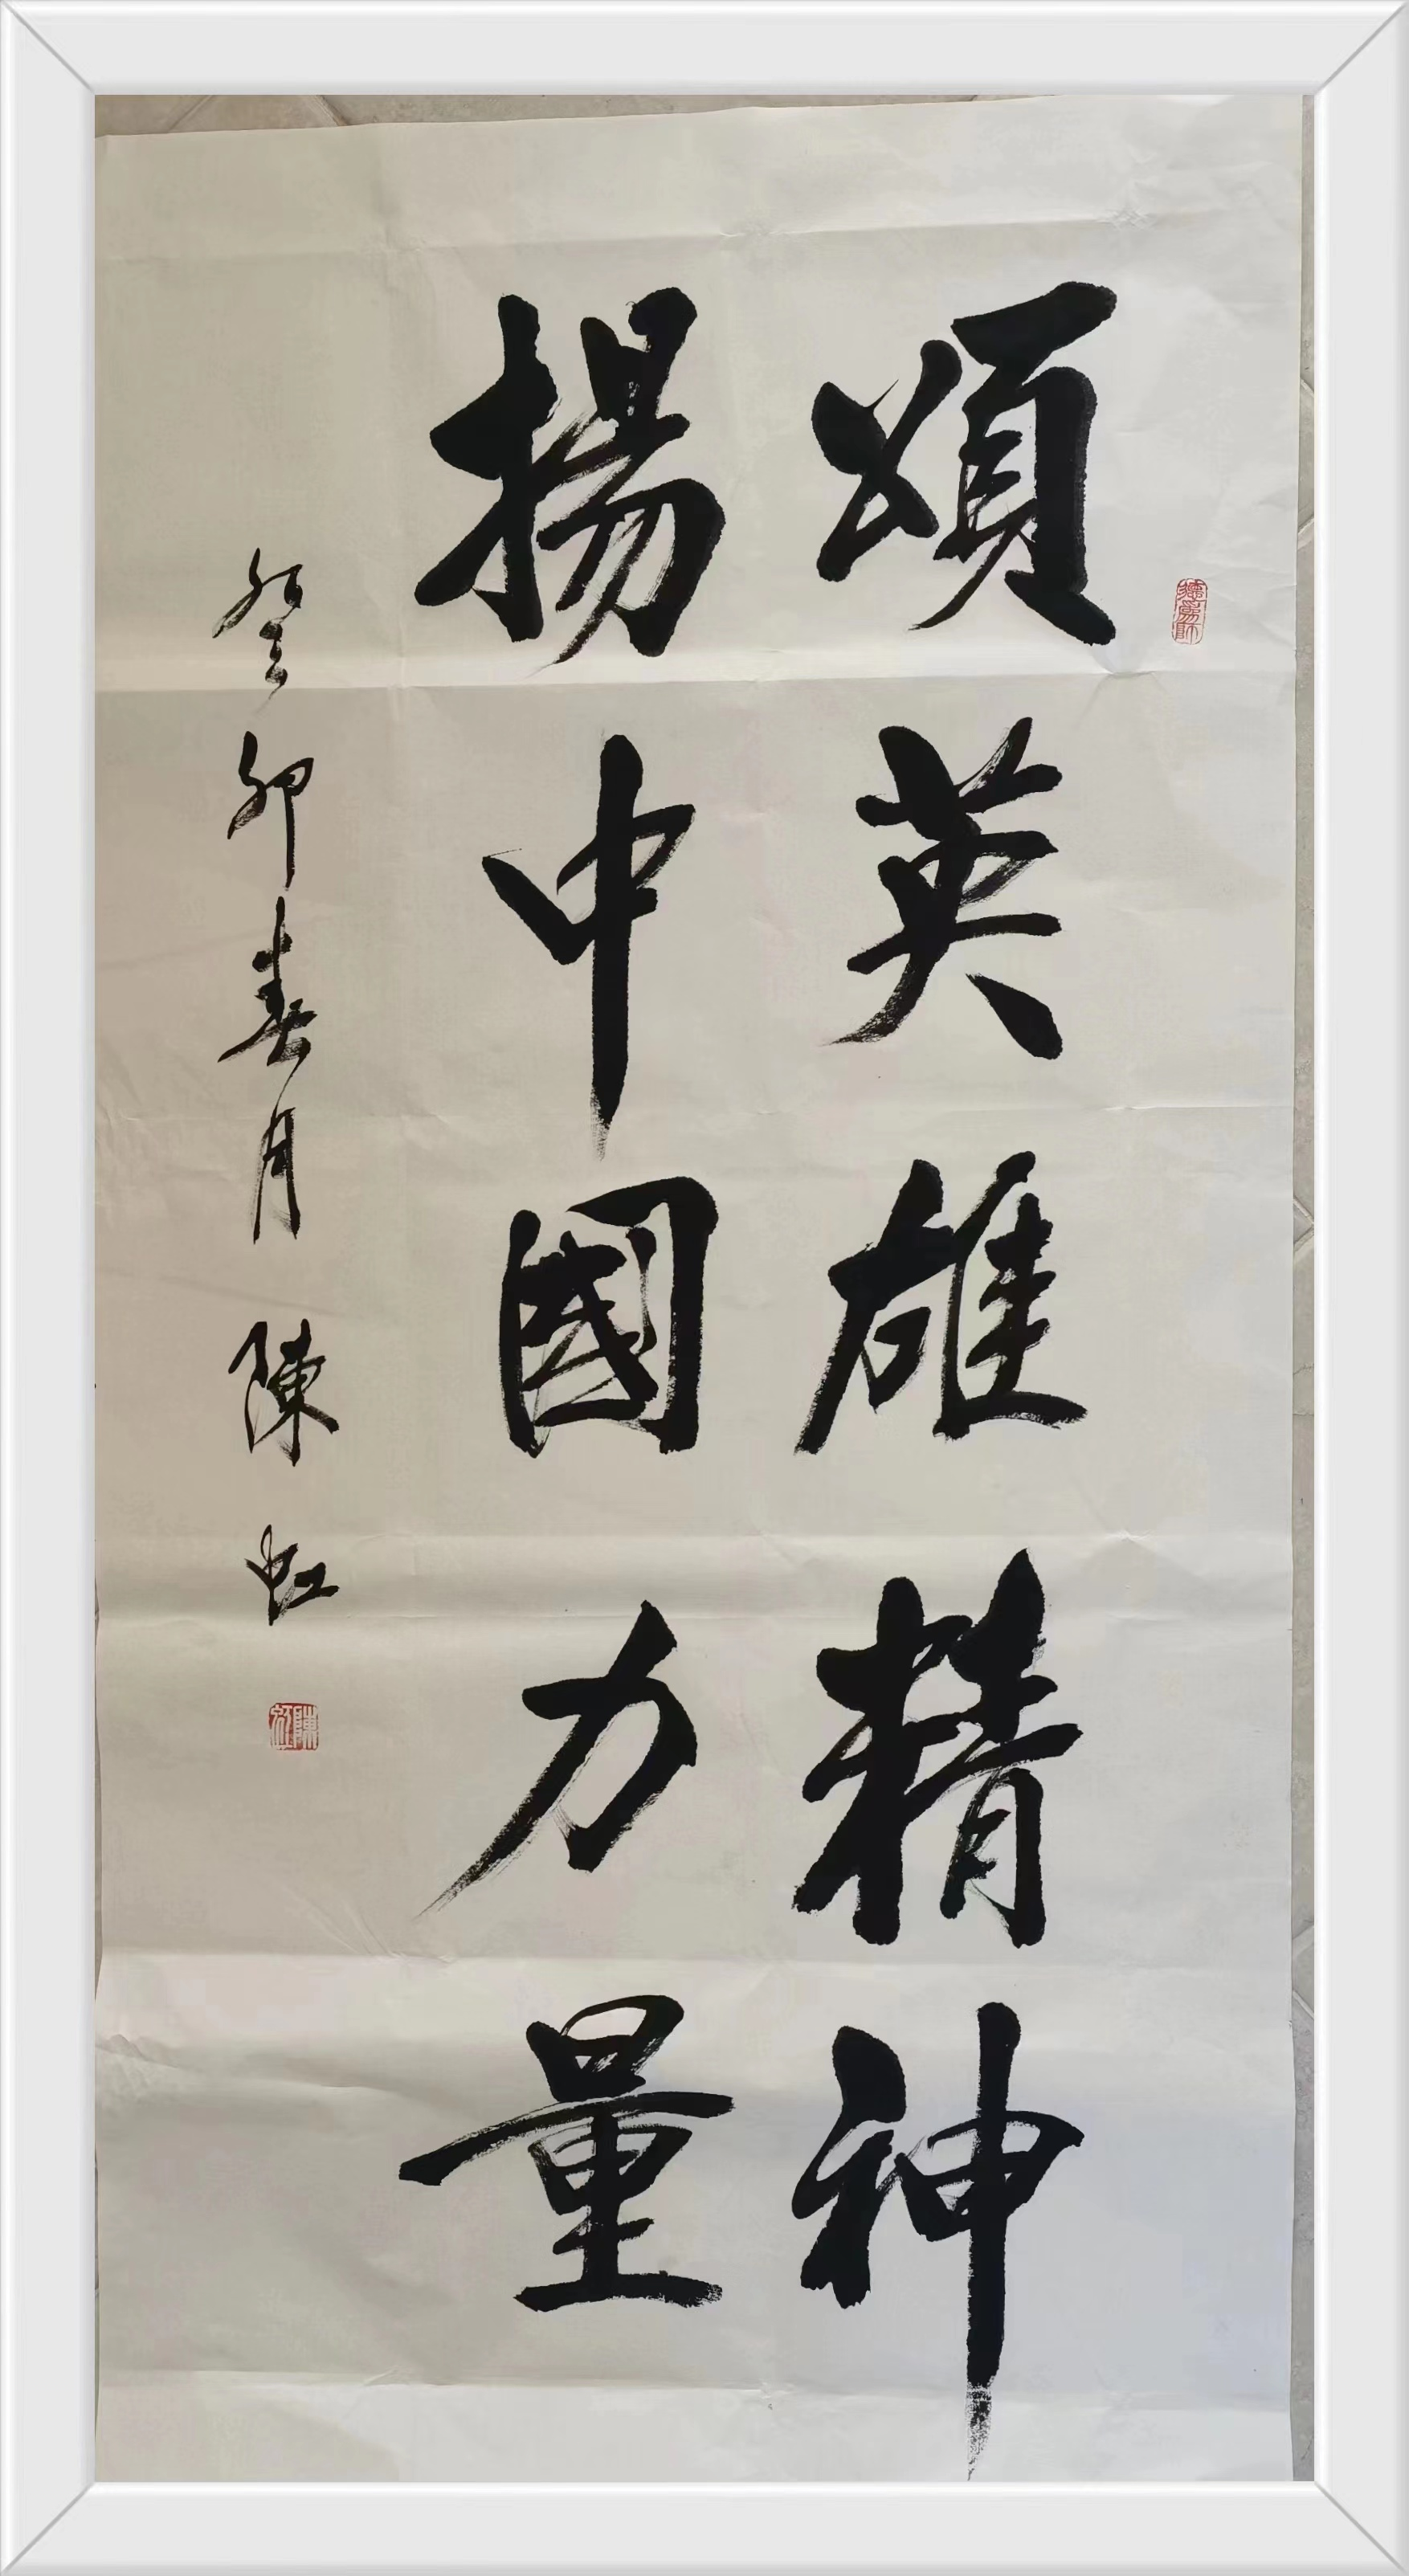 頌英雄精神
揚中國力量
癸卯春月 陳虹
陳虹